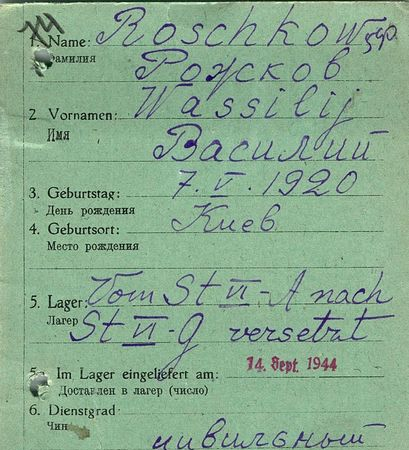 74
1. Name: Roschkow
Фамилия Рожков
2 Vornamen: Wassilij
Имя Василий
3. Geburtstag: 7. V. 1920
День рождения
4. Geburtsort: Киев
Место рождения
5. Lager: Vom St VI-A nach
Лагер St VI-G versetzt
5 Im Lager eingeliefert am: 14. Sept. 1944
Доставлен в лагер (число)
6. Dienstgrad:
Чин цивильный